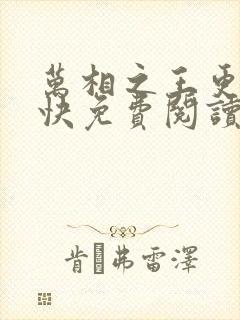 萬相之王更
快免費閱讀
肯·弗雷澤